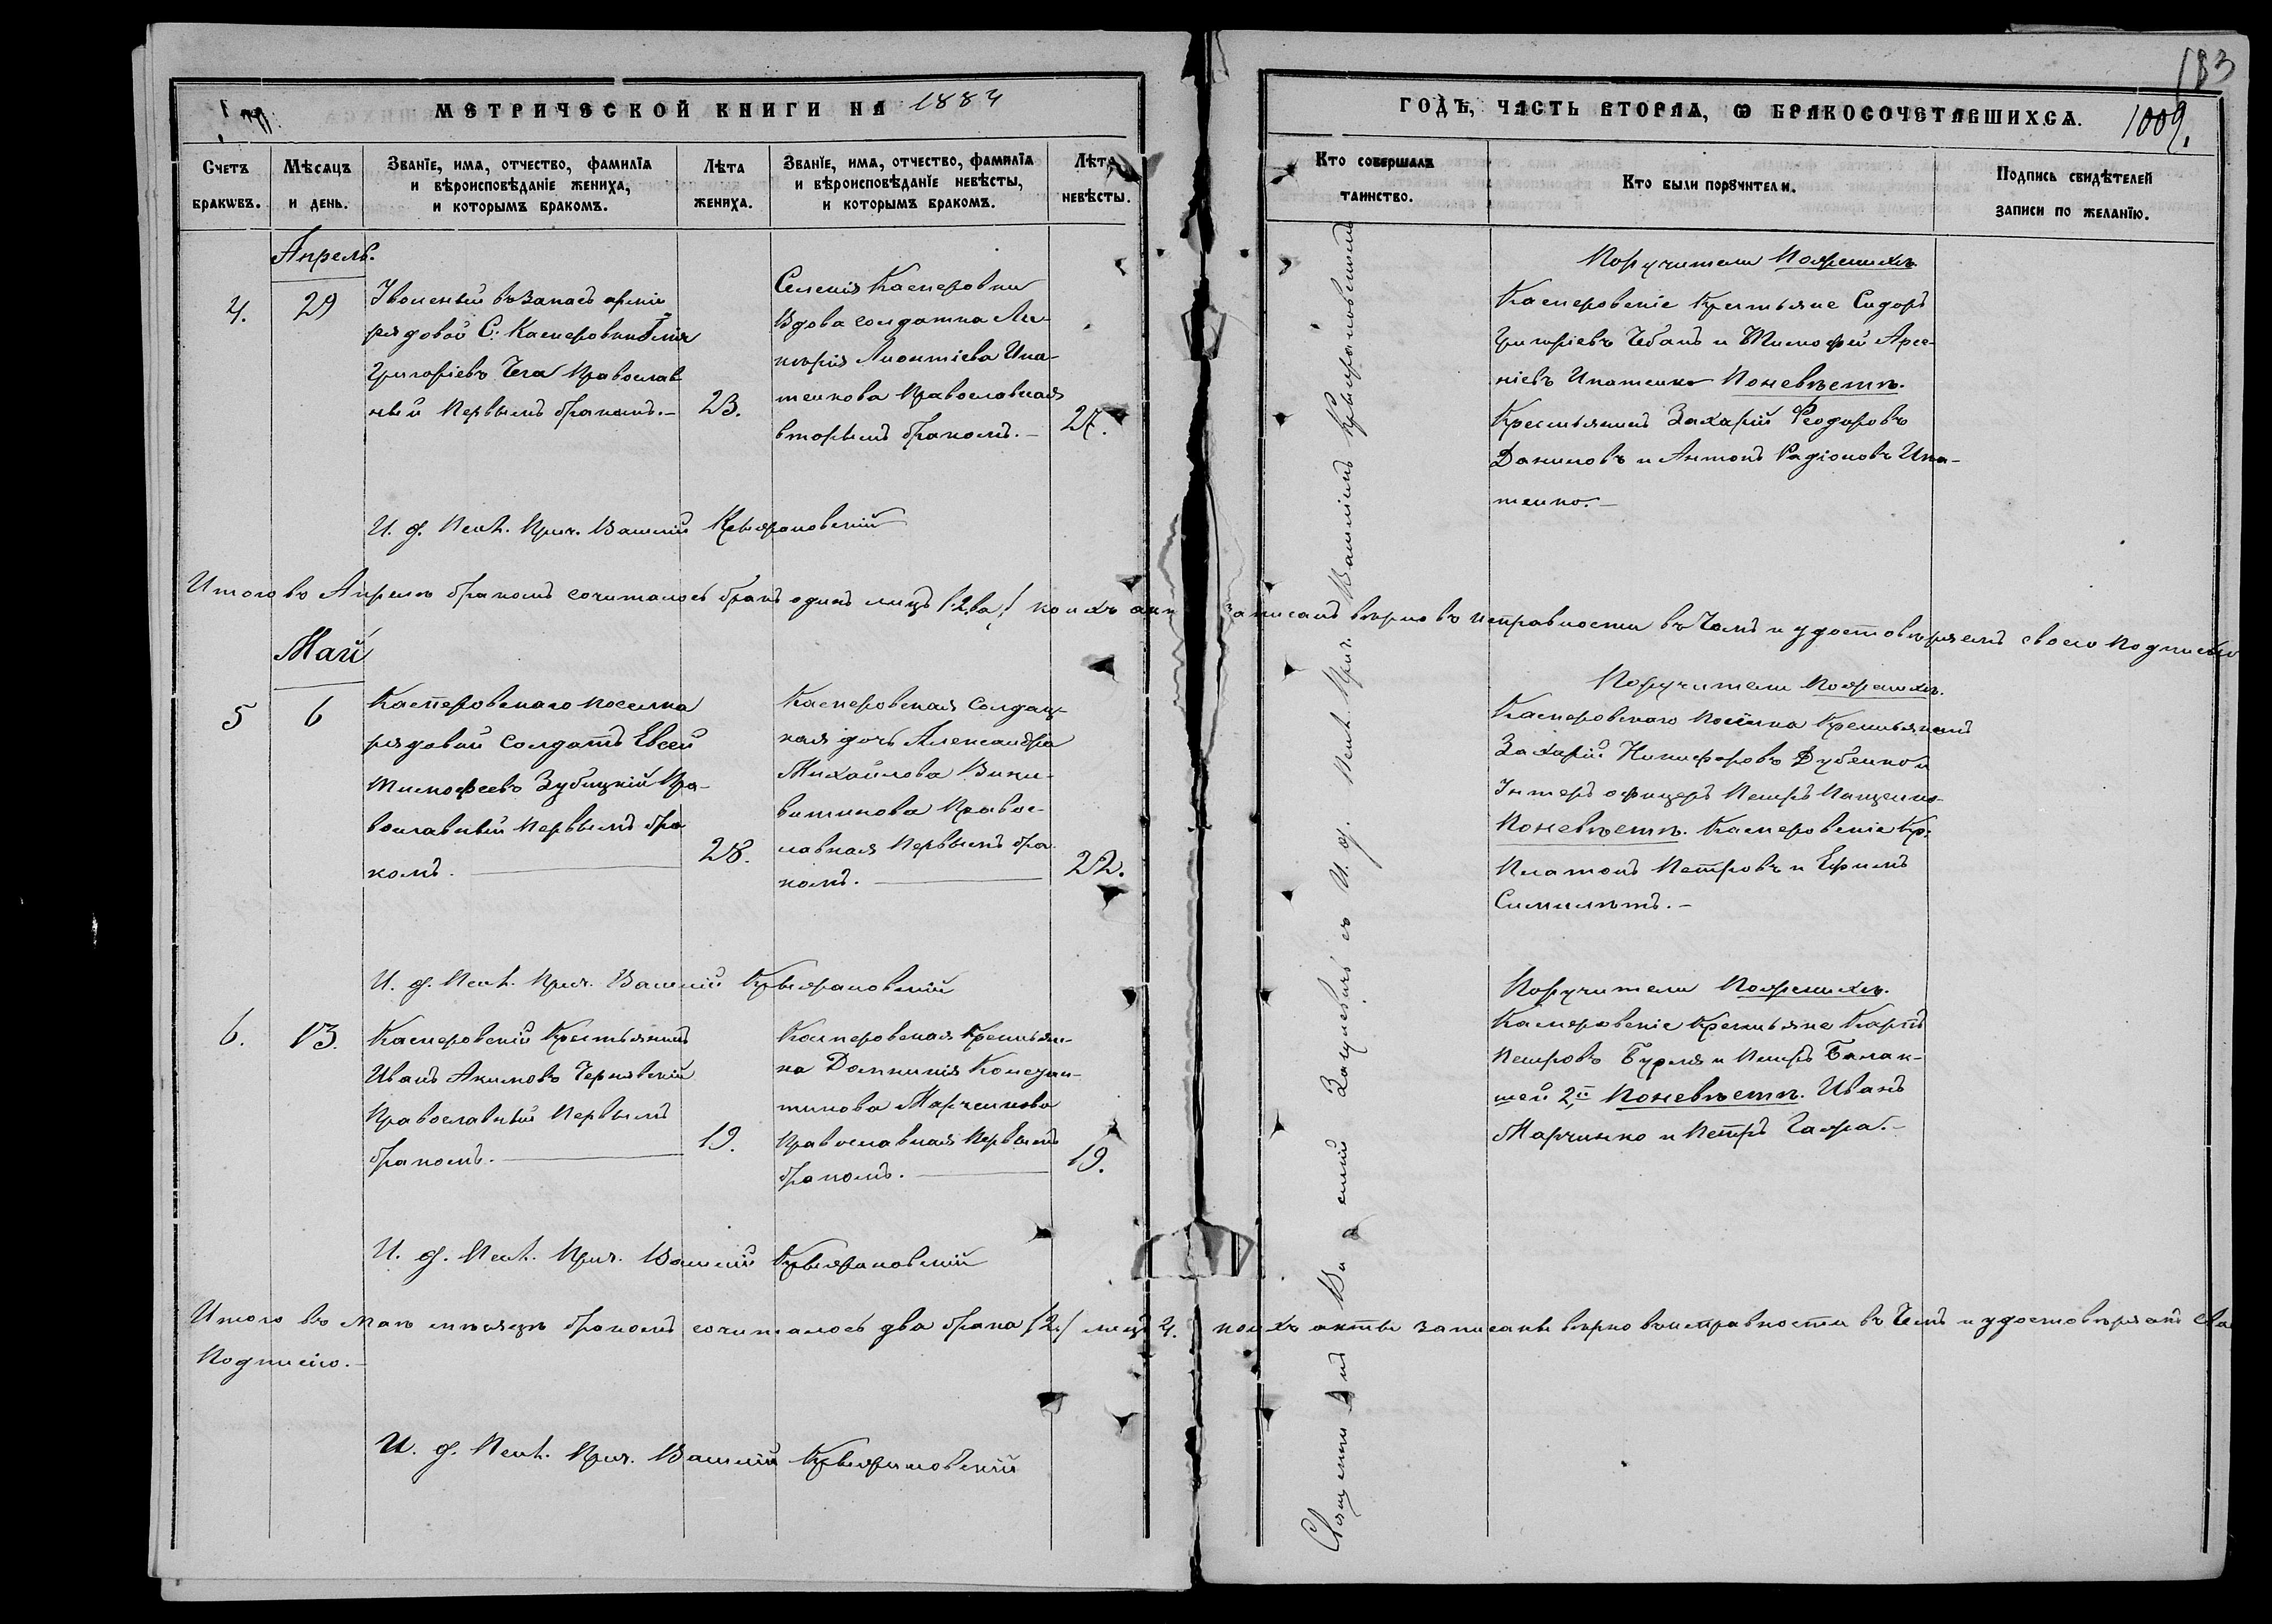 183
МЕТРИЧЕСКОЙ КНИГИ НА 1884
ГОДЪ, ЧАСТЬ ВТОРАЯ, Ѡ БРАКОСОЧЕТАВШИХСЯ. 1009.
Счетъ браковъ.
Мѣсяцъ и день.
Званїе, имя, отчество, фамилїя
и вѣроисповѣданїе жениха,
и которымъ бракомъ.
Лѣта жениха.
Званїе, имя, отчество, фамилїя
и вѣроисповѣданїе невѣсты,
и которымъ бракомъ.
Лѣта невѣсты.
Кто совершалъ таинство.
Кто были поручители.
Подпись свидѣтелей
записи по желанїю.
Апрель.
4.
29
Уволеный въ запасъ арміи
рядовой С: Касперовки
Григоріевъ Чега Православ
ный Первымъ бракомъ.–
23.
Селенія Касперовки
Вдова солдатка Лу-
керія Леонтіева Ипа-
тенкова Православная
вторымъ бракомъ.–
27.
Поручители Пожениху
Касперовскіе Крестьяне Сидоръ
Григоріевъ Чебанъ и Тимофей Арсе-
ніевъ Ипатенко Поневѣстѣ.
Крестьянинъ Захарій Феодоровъ
Даниловъ и Антонъ Радіоновъ Ипа-
тенко.–
И. д. Псал. Прич. Василій
Итого въ Апрелѣ бракомъ сочиталось бракъ одинъ лицъ /:2ва:/ коихъ акт записанъ вѣрно въ исправности въ Чемъ и удостовѣряемъ своею Подписью
Май
5
6
Касперовскаго поселка
рядовой солдатъ Евсей
Тимофеевъ Зубицкій Пра-
вославный Первымъ бра
комъ.
28.
Касперовская Солдат-
ская дочь Александра
Михайлова
Правос-
лавная Первымъ бра
комъ.
22.
Поручители Пожениху.
Касперовского Посёлка Крестьянинъ
Захарій Никифоровъ Дубенко и
Унтеръ офицеръ Петръ Пащенко
Поневѣстѣ. Касперовскіе Кр:
Платонъ Петровъ и Ефимъ
И. д. Псал. Прич. Василій
6.
13.
Касперовскій Крестьянинъ
Иванъ Акимовъ Чернявскій
Православный Первымъ
бракомъ.
19.
Касперовская Крестьян-
ка Домникія Констан-
тинова Марченкова
Православная Первымъ
бракомъ.
19.
Поручители Пожениху.
Касперовскіе Крестьяне Карпъ
Петровъ Бурля и Петръ Балак-
шей 2й Поневѣстѣ. Иванъ
Марченко и Петръ
И. д. Псал. Прич. Василій
Итого въ Маѣ мѣсяцѣ бракомъ сочиталось два брака /2./ лицъ 4. коихъ акты записаны вѣрно въ исправности въ Чемъ и удостовѣряемъ сво
Подписью.–
И. д. Псал. Прич. Василій